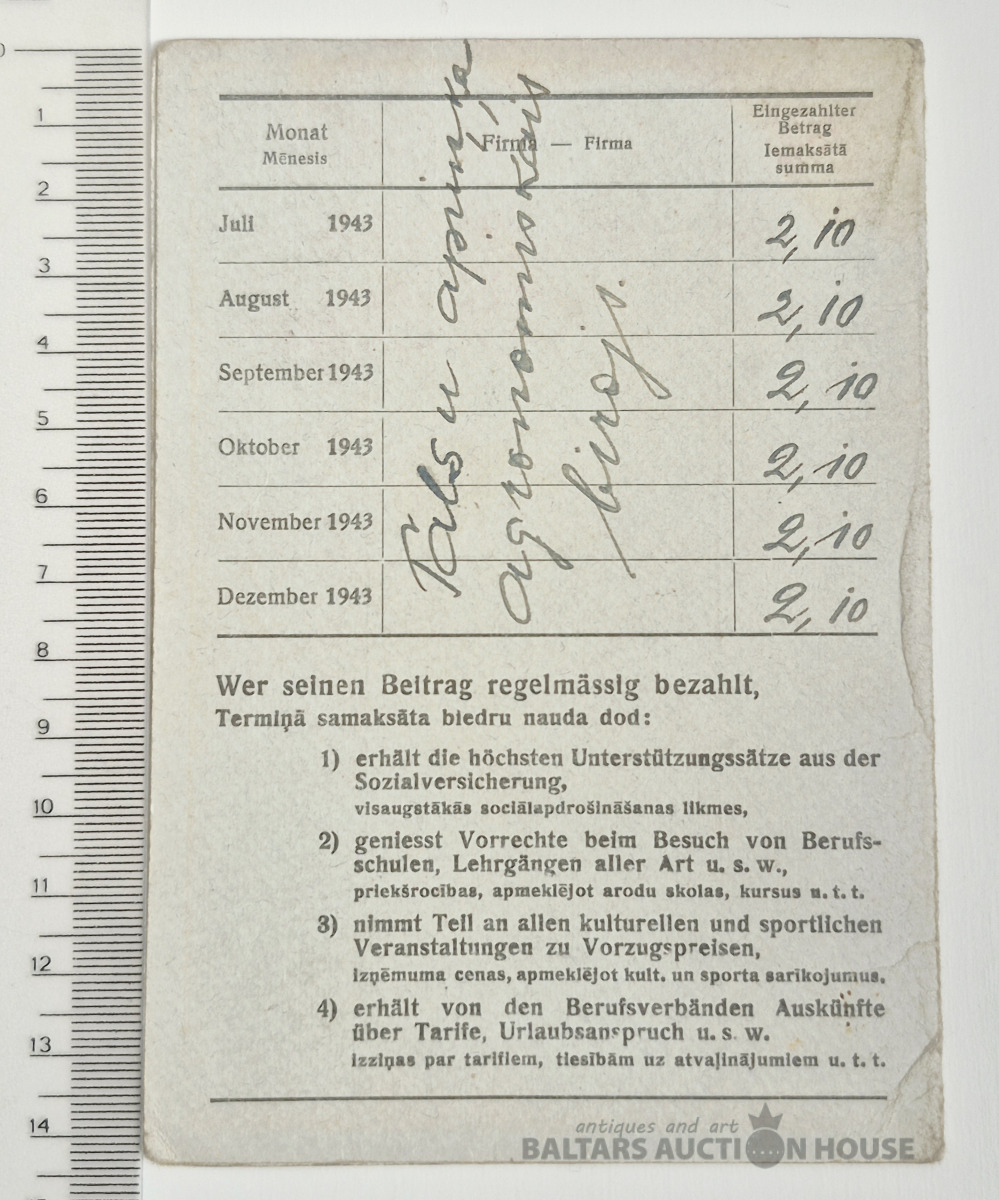 0
1
2
3
4
5
6
7
8
9
10
11
12
13
14
Monat
Mēnesis
Firma — Firma
Eingezahlter
Betrag
Iemaksātā
summa
Juli 1943 2,10
August 1943 2,10
September 1943 2,10
Oktober 1943 2,10
November 1943 2,10
Dezember 1943 2,10
Talsu apriņķa
agronomiskais
birojs.
Wer seinen Beitrag regelmässig bezahlt,
Termiņā samaksāta biedru nauda dod:
1) erhält die höchsten Unterstützungssätze aus der
Sozialversicherung,
visaugstākās sociālapdrošināšanas likmes,
2) geniesst Vorrechte beim Besuch von Berufs-
schulen, Lehrgängen aller Art u. s. w.,
priekšrocības, apmeklējot arodu skolas, kursus u. t. t.
3) nimmt Teil an allen kulturellen und sportlichen
Veranstaltungen zu Vorzugspreisen,
izņēmuma cenas, apmeklējot kult. un sporta sarīkojumus.
4) erhält von den Berufsverbänden Auskünfte
über Tarife, Urlaubsanspruch u. s. w.
izziņas par tarifiem, tiesībām uz atvaļinājumiem u. t. t.
antiques and art
BALTARS AUCTION HOUSE